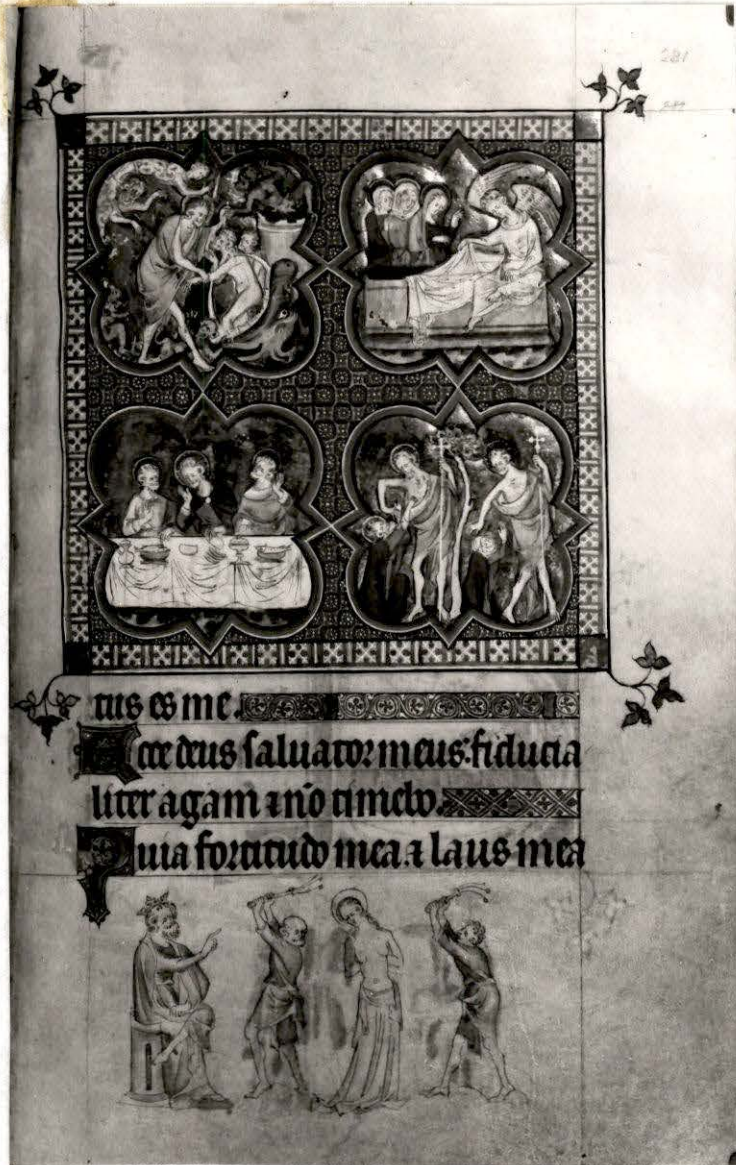 281
tus es me.
Ecce deus saluator meus: fiducia
liter agam ⁊ nõ timebo.
Quia fortitudo mea. ⁊ laus mea